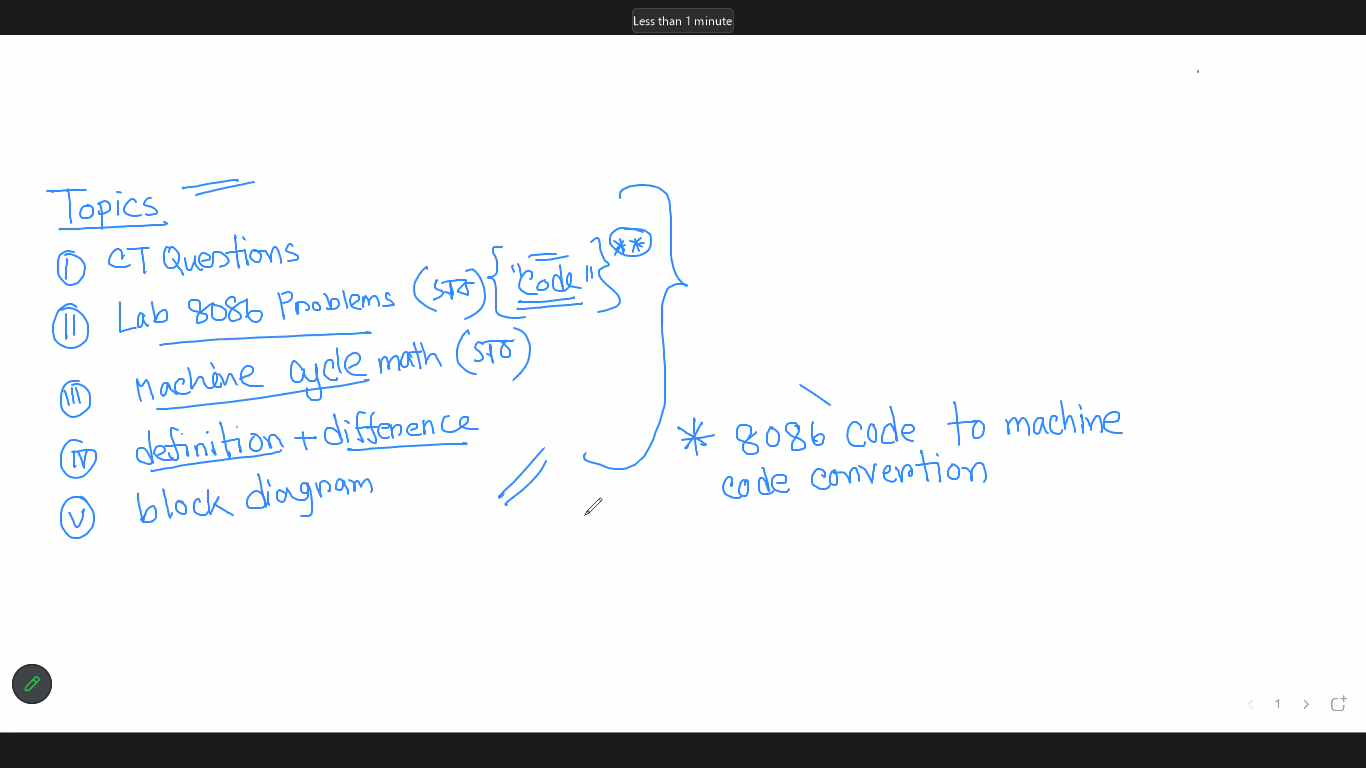 Less than 1 minute
Topics
I CT Questions
II Lab 8086 Problems { "Code" } **
III Machine cycle math
IV definition + difference
V block diagram
* 8086 code to machine
code convention
1